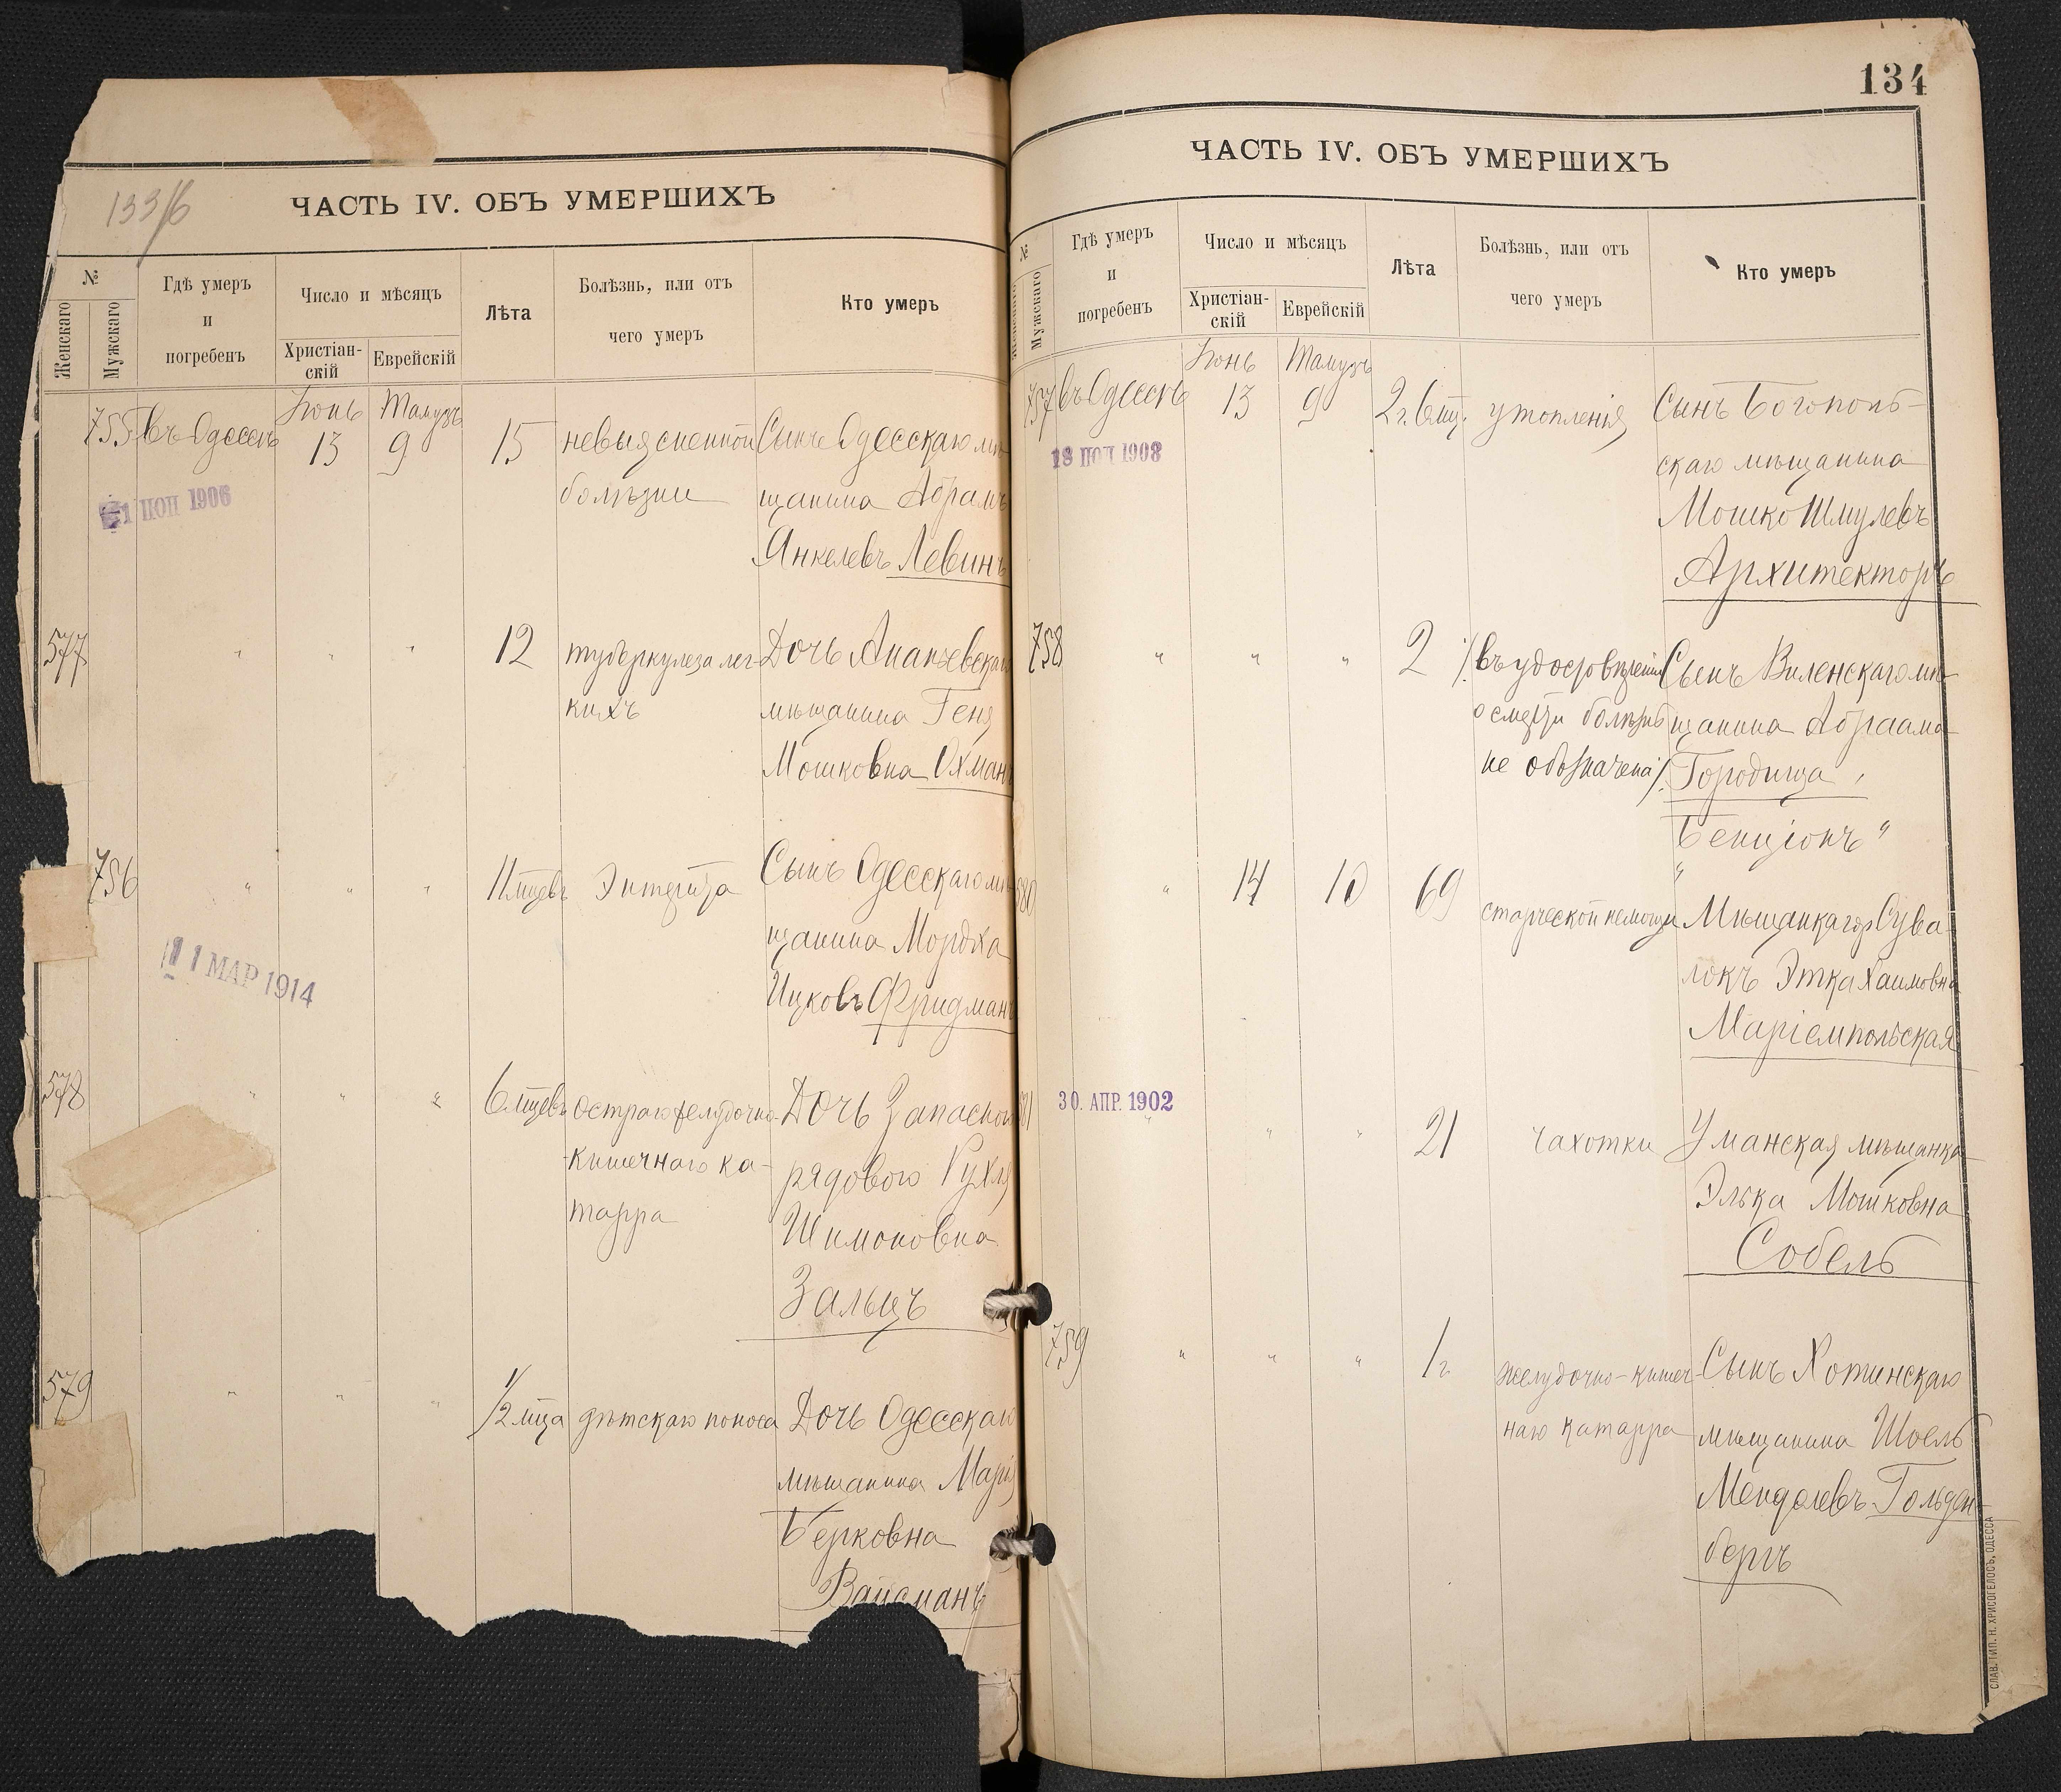 133/б
ЧАСТЬ IV. ОБЪ УМЕРШИХЪ
№
Женскаго
Мужскаго
Гдѣ умеръ
и
погребенъ
Число и мѣсяцъ
Христіан-
скій
Еврейскій
Лѣта
Болѣзнь, или отъ
чего умеръ
Кто умеръ
Іюнь Тамузъ
755 въ Одессѣ 13 9 15 невыясненной Сынъ Одесскаго мѣ-
болѣзни щанина Абрамъ
Янкелевъ Левинъ
1 ІЮЛ 1906
577 " " " 12 туберкулеза лег- Дочь Ананьевскаго
кихъ мѣщанина Геня
Мошковна Охманъ
756 " " " 11 мцевъ Энтерита Сынъ Одесскаго мѣ-
щанина Мордха
Ицковъ Фридманъ
11 МАР 1914
578 " " " 6 мцевъ остраго желудочно- Дочь Запаснаго
кишечнаго ка- рядового Рухля
тарра Шимоновна
Зальцъ
579 " " " 1/2 мца дѣтскаго поноса Дочь Одесскаго
мѣщанина Марія
Берковна
Вайсманъ
134
ЧАСТЬ IV. ОБЪ УМЕРШИХЪ
№
Женскаго
Мужскаго
Гдѣ умеръ
и
погребенъ
Число и мѣсяцъ
Христіан-
скій
Еврейскій
Лѣта
Болѣзнь, или отъ
чего умеръ
Кто умеръ
Іюнь Тамузъ
757 въ Одессѣ 13 9 2 г. 6 мц. утопленія Сынъ Богополь-
скаго мѣщанина
Мошко Шмулевъ
Архитекторъ
18 ІЮЛ 1908
758 " " " 2 /въ удостовѣреніи Сынъ Виленскаго мѣ-
о смерти болѣзнь щанина Абраама
не обозначена/. Городища,
Бенціонъ "
580 " 14 10 69 старческой немощи Мѣщанка гор. Сува-
локъ Этка Хаимовна
Маріемпольская
581 30. АПР. 1902
" " " 21 чахотки Уманская мѣщанка
Элька Мошковна
Собель
759 " " " 1 г. желудочно-кишеч- Сынъ Хотинскаго
наго катарра мѣщанина Шоель
Менделевъ Гольден-
бергъ
СЛАВ. ТИП. Н. ХРИСОГЕЛОСЪ, ОДЕССА